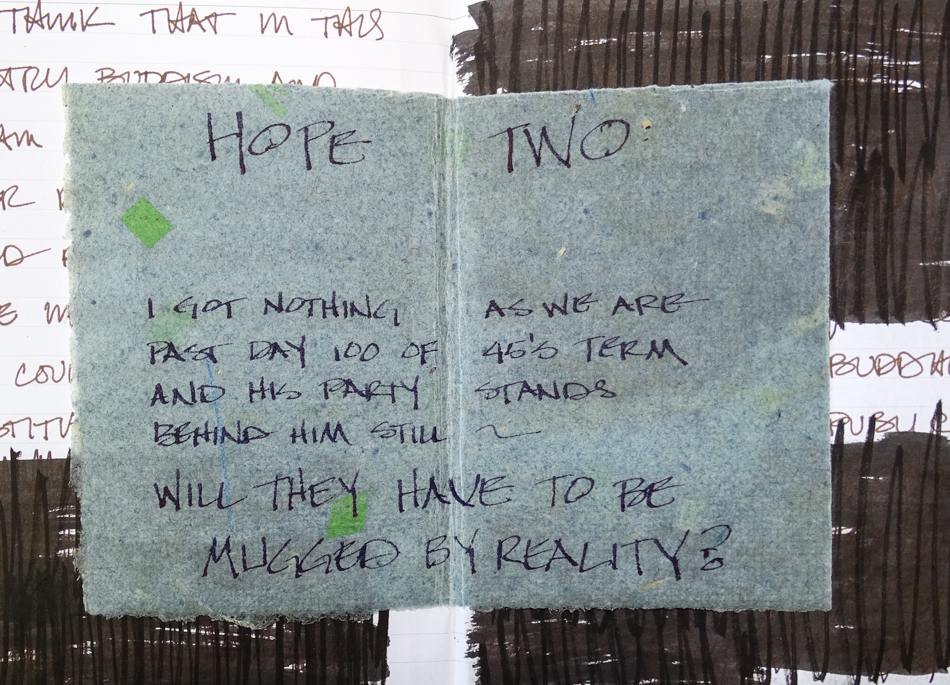 THINK THAT IN THIS
BUDDISM AND
HOPE TWO
I GOT NOTHING AS WE ARE
PAST DAY 100 OF 45'S TERM
AND HIS PARTY STANDS
BEHIND HIM STILL ~
WILL THEY HAVE TO BE
MUGGED BY REALITY?